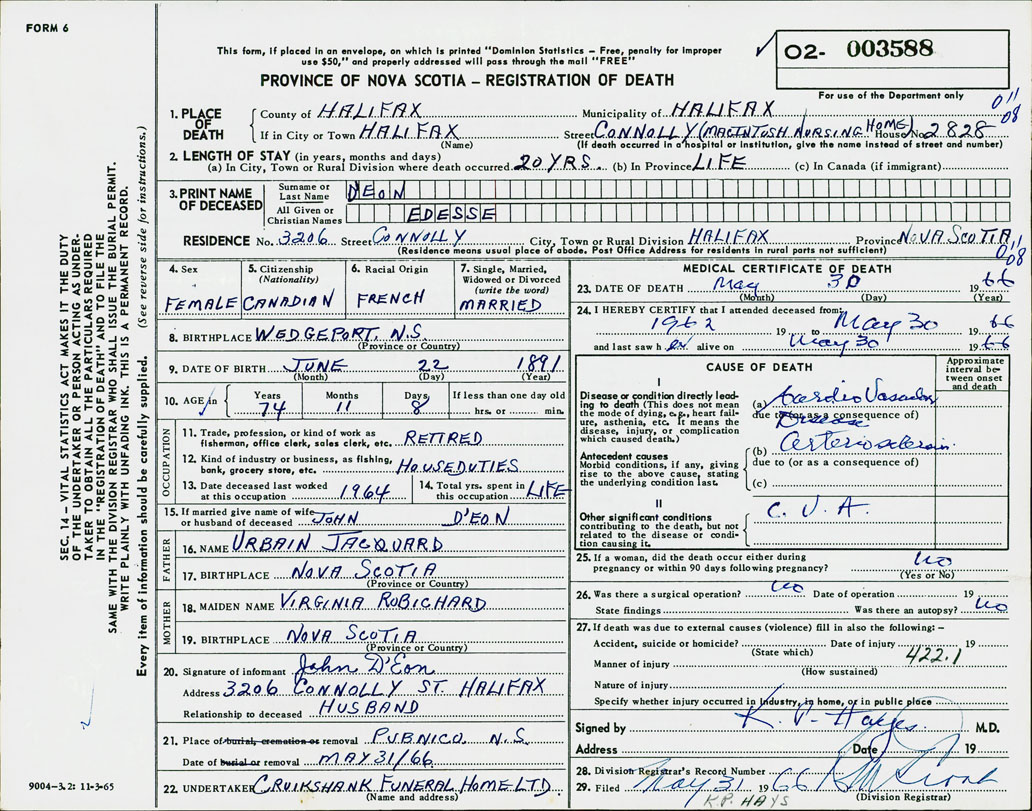 FORM 6
This form, if placed in an envelope, on which is printed "Dominion Statistics – Free, penalty for improper
use $50," and properly addressed will pass through the mail "FREE"
PROVINCE OF NOVA SCOTIA – REGISTRATION OF DEATH
✓ 02- 003588
For use of the Department only
011
08
1. PLACE OF DEATH
County of HALIFAX Municipality of HALIFAX
If in City or Town HALIFAX Street CONNOLLY (MACINTOSH NURSING HOME) House No. 2828
(Name) (If death occurred in a hospital or institution, give the name instead of street and number)
2. LENGTH OF STAY (in years, months and days)
(a) In City, Town or Rural Division where death occurred 20 YRS. (b) In Province LIFE (c) In Canada (if immigrant)
3. PRINT NAME OF DECEASED
Surname or Last Name D'EON
All Given or Christian Names EDESSE
RESIDENCE No. 3206 Street CONNOLLY City, Town or Rural Division HALIFAX Province NOVA SCOTIA
(Residence means usual place of abode. Post Office Address for residents in rural parts not sufficient)
011
08
4. Sex
FEMALE
5. Citizenship (Nationality)
CANADIAN
6. Racial Origin
FRENCH
7. Single, Married, Widowed or Divorced (write the word)
MARRIED
8. BIRTHPLACE WEDGEPORT, N.S.
(Province or Country)
9. DATE OF BIRTH JUNE 22 1891
(Month) (Day) (Year)
10. AGE in Years Months Days If less than one day old
74 11 8 hrs. or min.
OCCUPATION
11. Trade, profession, or kind of work as fisherman, office clerk, sales clerk, etc. RETIRED
12. Kind of industry or business, as fishing, bank, grocery store, etc. HOUSEDUTIES
13. Date deceased last worked at this occupation 1964
14. Total yrs. spent in this occupation LIFE
15. If married give name of wife or husband of deceased JOHN D'EON
FATHER
16. NAME URBAIN JACQUARD
17. BIRTHPLACE NOVA SCOTIA
(Province or Country)
MOTHER
18. MAIDEN NAME VIRGINIA ROBICHARD
19. BIRTHPLACE NOVA SCOTIA
(Province or Country)
20. Signature of informant John D'Eon
Address 3206 CONNOLLY ST. HALIFAX
Relationship to deceased HUSBAND
21. Place of burial, cremation or removal PUBNICO, N.S.
Date of burial or removal MAY 31/66
22. UNDERTAKER CRUIKSHANK FUNERAL HOME LTD
(Name and address)
MEDICAL CERTIFICATE OF DEATH
23. DATE OF DEATH May 30 1966
(Month) (Day) (Year)
24. I HEREBY CERTIFY that I attended deceased from:
1962 19 to May 30 66
and last saw her alive on May 30 1966
CAUSE OF DEATH
Approximate interval between onset and death
I
Disease or condition directly leading to death (This does not mean the mode of dying, e.g., heart failure, asthenia, etc. It means the disease, injury, or complication which caused death.)
(a) Cardio Vascular
due to (or as a consequence of)
Disease
Antecedent causes
Morbid conditions, if any, giving rise to the above cause, stating the underlying condition last.
(b) Arteriosclerosis
due to (or as a consequence of)
(c)
II
Other significant conditions contributing to the death, but not related to the disease or condition causing it.
C. V. A.
25. If a woman, did the death occur either during pregnancy or within 90 days following pregnancy? no
(Yes or No)
26. Was there a surgical operation? no Date of operation 19
State findings Was there an autopsy? no
27. If death was due to external causes (violence) fill in also the following: –
Accident, suicide or homicide? Date of injury 19
(State which)
422.1
Manner of injury
(How sustained)
Nature of injury
Specify whether injury occurred in Industry, in home, or in public place
Signed by K. P. Hayes. M.D.
Address Date 19
28. Division Registrar's Record Number
29. Filed May 31 1966
(Division Registrar)
K.P. HAYS
SEC. 14 – VITAL STATISTICS ACT MAKES IT THE DUTY
OF THE UNDERTAKER OR PERSON ACTING AS UNDER-
TAKER TO OBTAIN ALL THE PARTICULARS REQUIRED
IN THE "REGISTRATION OF DEATH" AND TO FILE THE
SAME WITH THE DIVISION REGISTRAR WHO SHALL ISSUE THE BURIAL PERMIT.
WRITE PLAINLY WITH UNFADING INK. THIS IS A PERMANENT RECORD.
Every item of information should be carefully supplied. (See reverse side for instructions.)
9004-3.2: 11-3-65